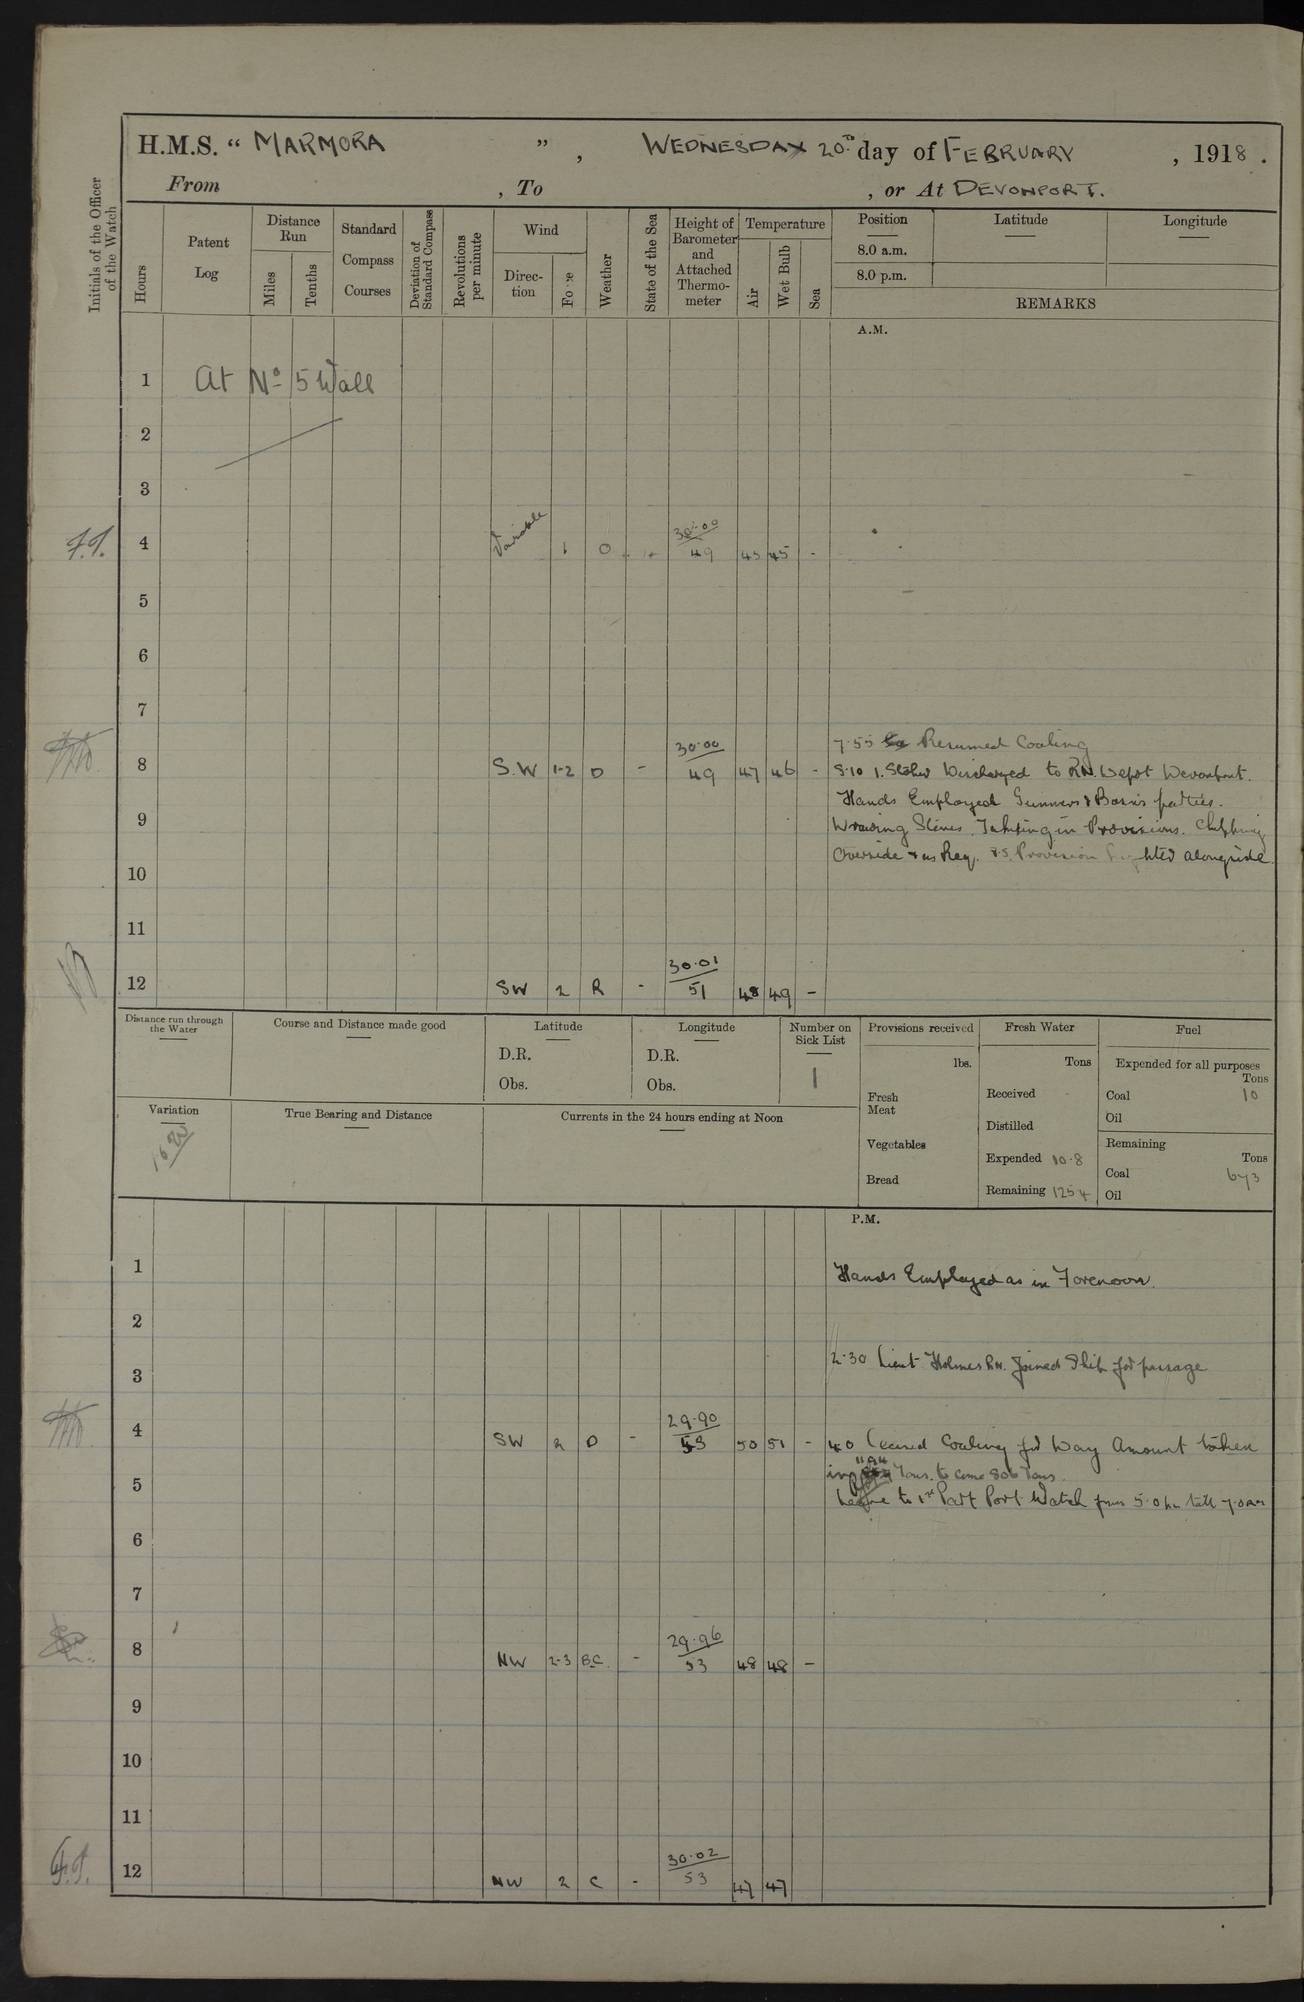 H.M.S. “ MARMORA ” , WEDNESDAY 20th day of FEBRUARY , 1918 .
From , To , or At DEVONPORT.
Initials of the Officer of the Watch
Hours
Patent Log
Distance Run
Miles
Tenths
Standard Compass Courses
Deviation of Standard Compass
Revolutions per minute
Wind
Direc-tion
Force
Weather
State of the Sea
Height of Barometer and Attached Thermo-meter
Temperature
Air
Wet Bulb
Sea
Position
8.0 a.m.
8.0 p.m.
Latitude
Longitude
REMARKS
A.M.
1 At No 5 Wall
2
3
4 Variable 1 O 30.00 49 45 45 -
5
6
7
7.55 Resumed Coaling
8 S.W 1-2 O - 30.00 49 47 46 - 8.10 1. Stoker Discharged to RN. Depot Devonport.
Hands Employed Gunners & Bosn's parties.
9 Drawing Stores. Taking in Provisions. Chipping
Overside & as Req. Provision Lighter alongside.
10
11
12 SW 2 R - 30.01 51 48 49 -
Distance run through the Water
Course and Distance made good
Latitude
D.R.
Obs.
Longitude
D.R.
Obs.
Number on Sick List
1
Provisions received
lbs.
Fresh Meat
Vegetables
Bread
Fresh Water
Tons
Received -
Distilled
Expended 10.8
Remaining 1254
Fuel
Expended for all purposes
Tons
Coal 10
Oil
Remaining
Tons
Coal 673
Oil
Variation
16 W
True Bearing and Distance
Currents in the 24 hours ending at Noon
P.M.
1 Hands Employed as in Forenoon.
2
2.30 Lieut Holmes R.N. Joined Ship for passage
3
4 SW 2 O - 29.90 53 50 51 - 4.0 Ceased Coaling for Day Amount taken
in Tons. to come 806 Tons.
5 Leave to 1st Part Port Watch from 5.0 pm till 7.0 am
6
7
8 NW 2-3 B.C. - 29.96 53 48 48 -
9
10
11
12 NW 2 C - 30.02 53 47 47